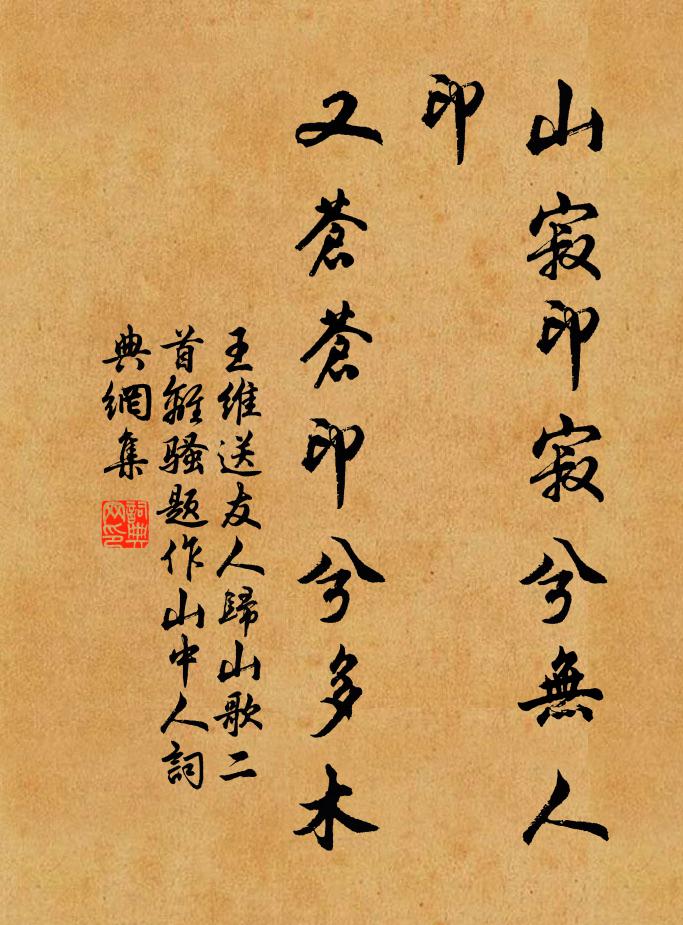 山寂印寂兮無人
印
又蒼蒼印兮多木
王維送友人歸山歌二
首離騷题作山中人詞
典網集
詞典
网印